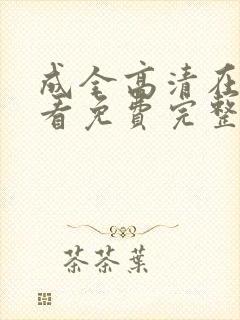 成全高清在
看免费完整
茶茶葉